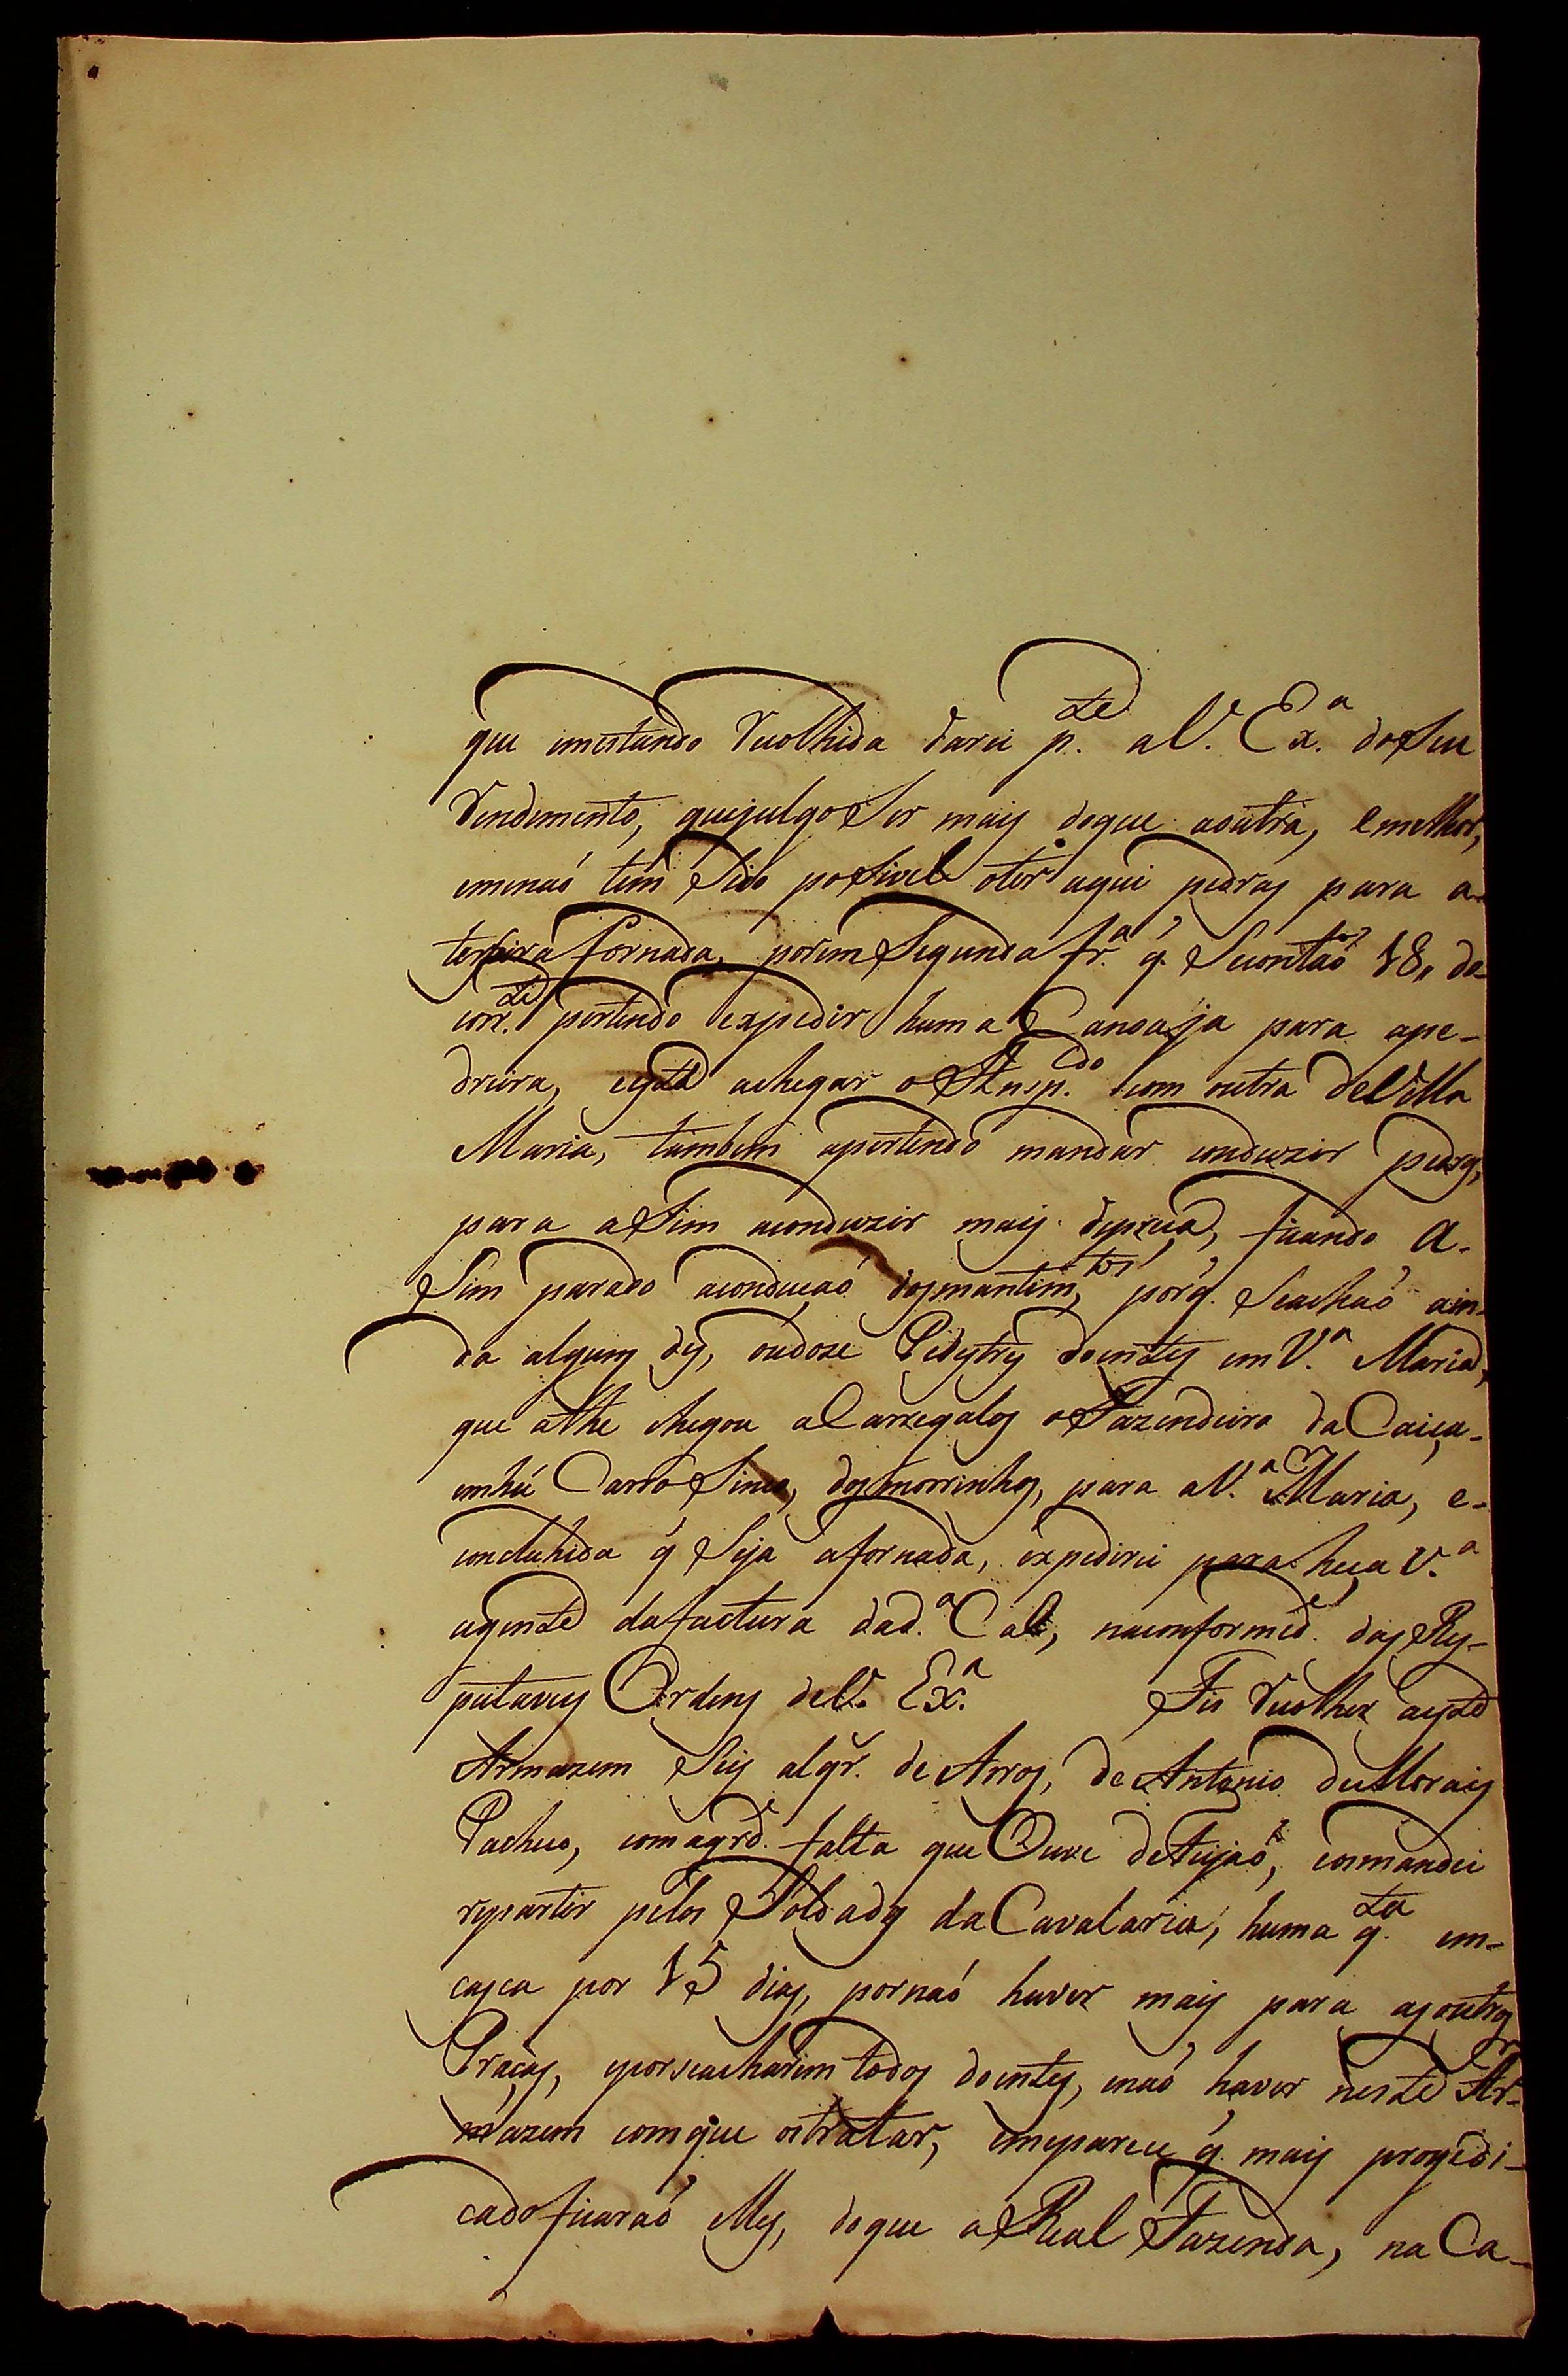 que emestando recolhida darei p.te a V. Ex.a do Seu
rendimento, quejulgo Ser mais doque aoutra, emelhor,
emenaó tem Sido poSivel oter aqui pedras para a-
terSeira fornada, porem Segunda fr.a q' Secontaó 18, do
corr.te pertendo expedir huma Canoa ja para ape-
dreira, eesta achegar o Ansp.do com outra deVilla
Maria, tambem apertendo mandar conduzir pedras,
para aSim aconduzir mais depreça, ficando a-
Sim parado aconduçaó dosmantim.tos, porq' Seachaó ain-
da alguns des, oudoze Pedestres doentes em V.a Maria,
que athe chegou aCarregalos o Fazendeiro daCaiça-
emhú Carro Sinco, dosmorrinhos, para aV.a Maria, e-
concluhida q' Seja afornada, expedirei para heça V.a
agente dafactura dad.a Cal, naconformid.e das Res-
peitaveis Ordens deV. Ex.a Fis recolher aeste
Armazem Seis alqr. de Arros, de Antonio deMorais
Pacheco, comagrd.e falta que Ouve deFeijaó, eosmandei
repartir pelos Soldados daCavalaria, huma q.ta em-
casca por 15 dias, pornaó haver mais para asoutras
Praças, eporseacharem todos doentes, enaó haver neste Ar-
mazem comque ostratar, emeparece q' mais projedi-
cado ficaraó elles, doque a Real Fazenda, na Ca-